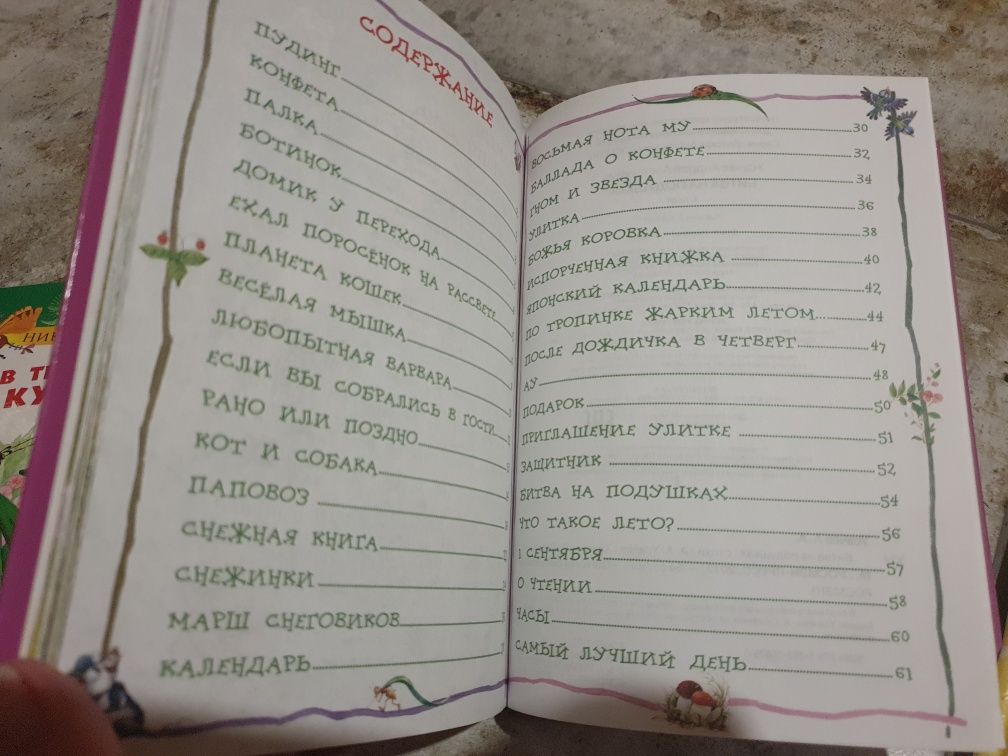 СОДЕРЖАНИЕ
ПУДИНГ
КОНФЕТА
ПАЛКА
БОТИНОК
ДОМИК У ПЕРЕХОДА
ЕХАЛ ПОРОСЁНОК НА РАССВЕТЕ
ПЛАНЕТА КОШЕК
ВЕСЁЛАЯ МЫШКА
ЛЮБОПЫТНАЯ ВАРВАРА
ЕСЛИ ВЫ СОБРАЛИСЬ В ГОСТИ
РАНО ИЛИ ПОЗДНО
КОТ И СОБАКА
ПАПОВОЗ
СНЕЖНАЯ КНИГА
СНЕЖИНКИ
МАРШ СНЕГОВИКОВ
КАЛЕНДАРЬ
ВОСЬМАЯ НОТА МУ 30
БАЛЛАДА О КОНФЕТЕ 32
ГНОМ И ЗВЕЗДА 34
УЛИТКА 36
БОЖЬЯ КОРОВКА 38
ИСПОРЧЕННАЯ КНИЖКА 40
ЯПОНСКИЙ КАЛЕНДАРЬ 42
ПО ТРОПИНКЕ ЖАРКИМ ЛЕТОМ... 44
ПОСЛЕ ДОЖДИЧКА В ЧЕТВЕРГ 47
АУ 48
ПОДАРОК 50
ПРИГЛАШЕНИЕ УЛИТКЕ 51
ЗАЩИТНИК 52
БИТВА НА ПОДУШКАХ 54
ЧТО ТАКОЕ ЛЕТО? 56
1 СЕНТЯБРЯ 57
О ЧТЕНИИ 58
ЧАСЫ 60
САМЫЙ ЛУЧШИЙ ДЕНЬ 61